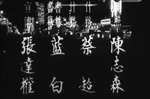 陳志森
蔡超
藍白
張達權